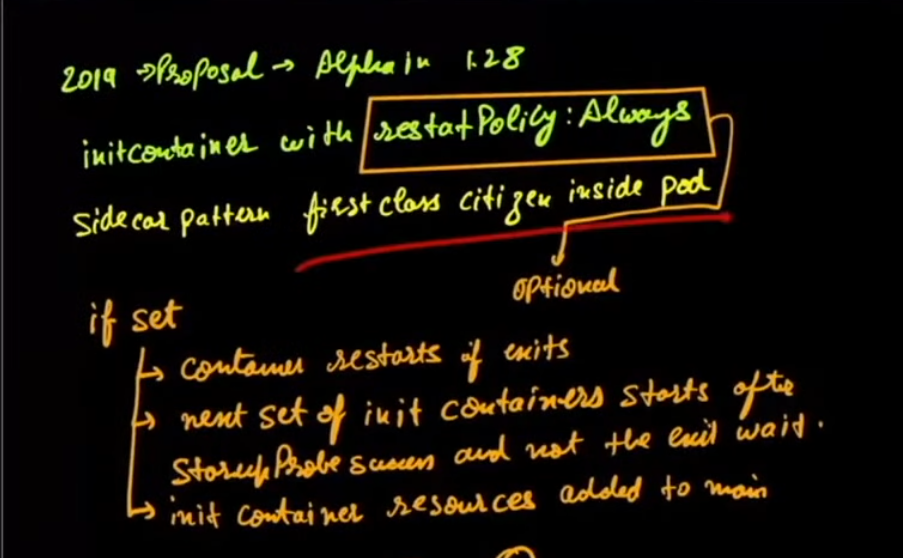 2019 → Proposal → Alpha in 1.28
initcontainer with restatPolicy: Always
Sidecar pattern first class citizen inside pod
optional
if set
↳ container restarts if exits
↳ next set of init containers starts after
StartupProbe success and not the exit wait.
↳ init container resources added to main